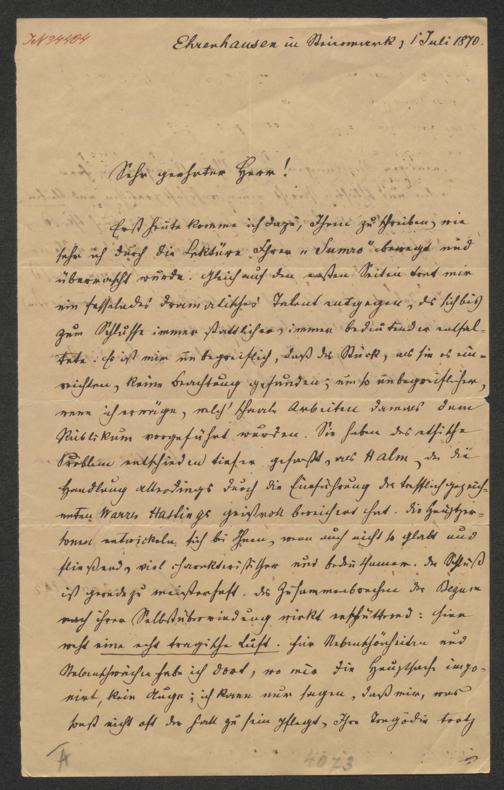 JN 34404
Ehrenhausen in Steiermark, 1 Juli 1870.
Sehr geehrter Herr!
Erst heute komme ich dazu, Ihnen zu schreiben, wie
sehr ich durch die Lektüre Ihrer „Sumro“ bewegt und
überrascht wurde. Gleich auf den ersten Seiten trat mir
ein fesselndes dramatisches Talent entgegen, das sich bis
zum Schlusse immer stattlicher, immer bedeutender entfal-
tete: Es ist mir unbegreiflich, daß das Stück, als Sie es ein-
reichten, keine Beachtung gefunden; um so unbegreiflicher,
wenn ich erwäge, welch' schaale Arbeiten damals dem
Publikum vorgeführt wurden. Sie haben das ethische
Problem entschieden tiefer gefaßt, als Halm, der die
Handlung allerdings durch die Einführung des trefflich gezeich-
neten Warren Hastings geistvoll bereichert hat. Die Hauptper-
sonen entwickeln sich bei Ihnen, wenn auch nicht so glatt und
fließend, viel charakteristischer und bedeutsamer. Der Schluß
ist geradezu meisterhaft. Das Zusammenbrechen der Begum
nach ihrer Selbstüberwindung wirkt erschütternd: hier
weht eine echt tragische Luft. Für Nebenschönheiten und
Nebenschwächen habe ich dort, wo mir die Hauptsache impo-
nirt, kein Auge; ich kann nur sagen, daß mir, was
sonst nicht oft der Fall zu sein pflegt, Ihre Tragödie trotz
A
4073